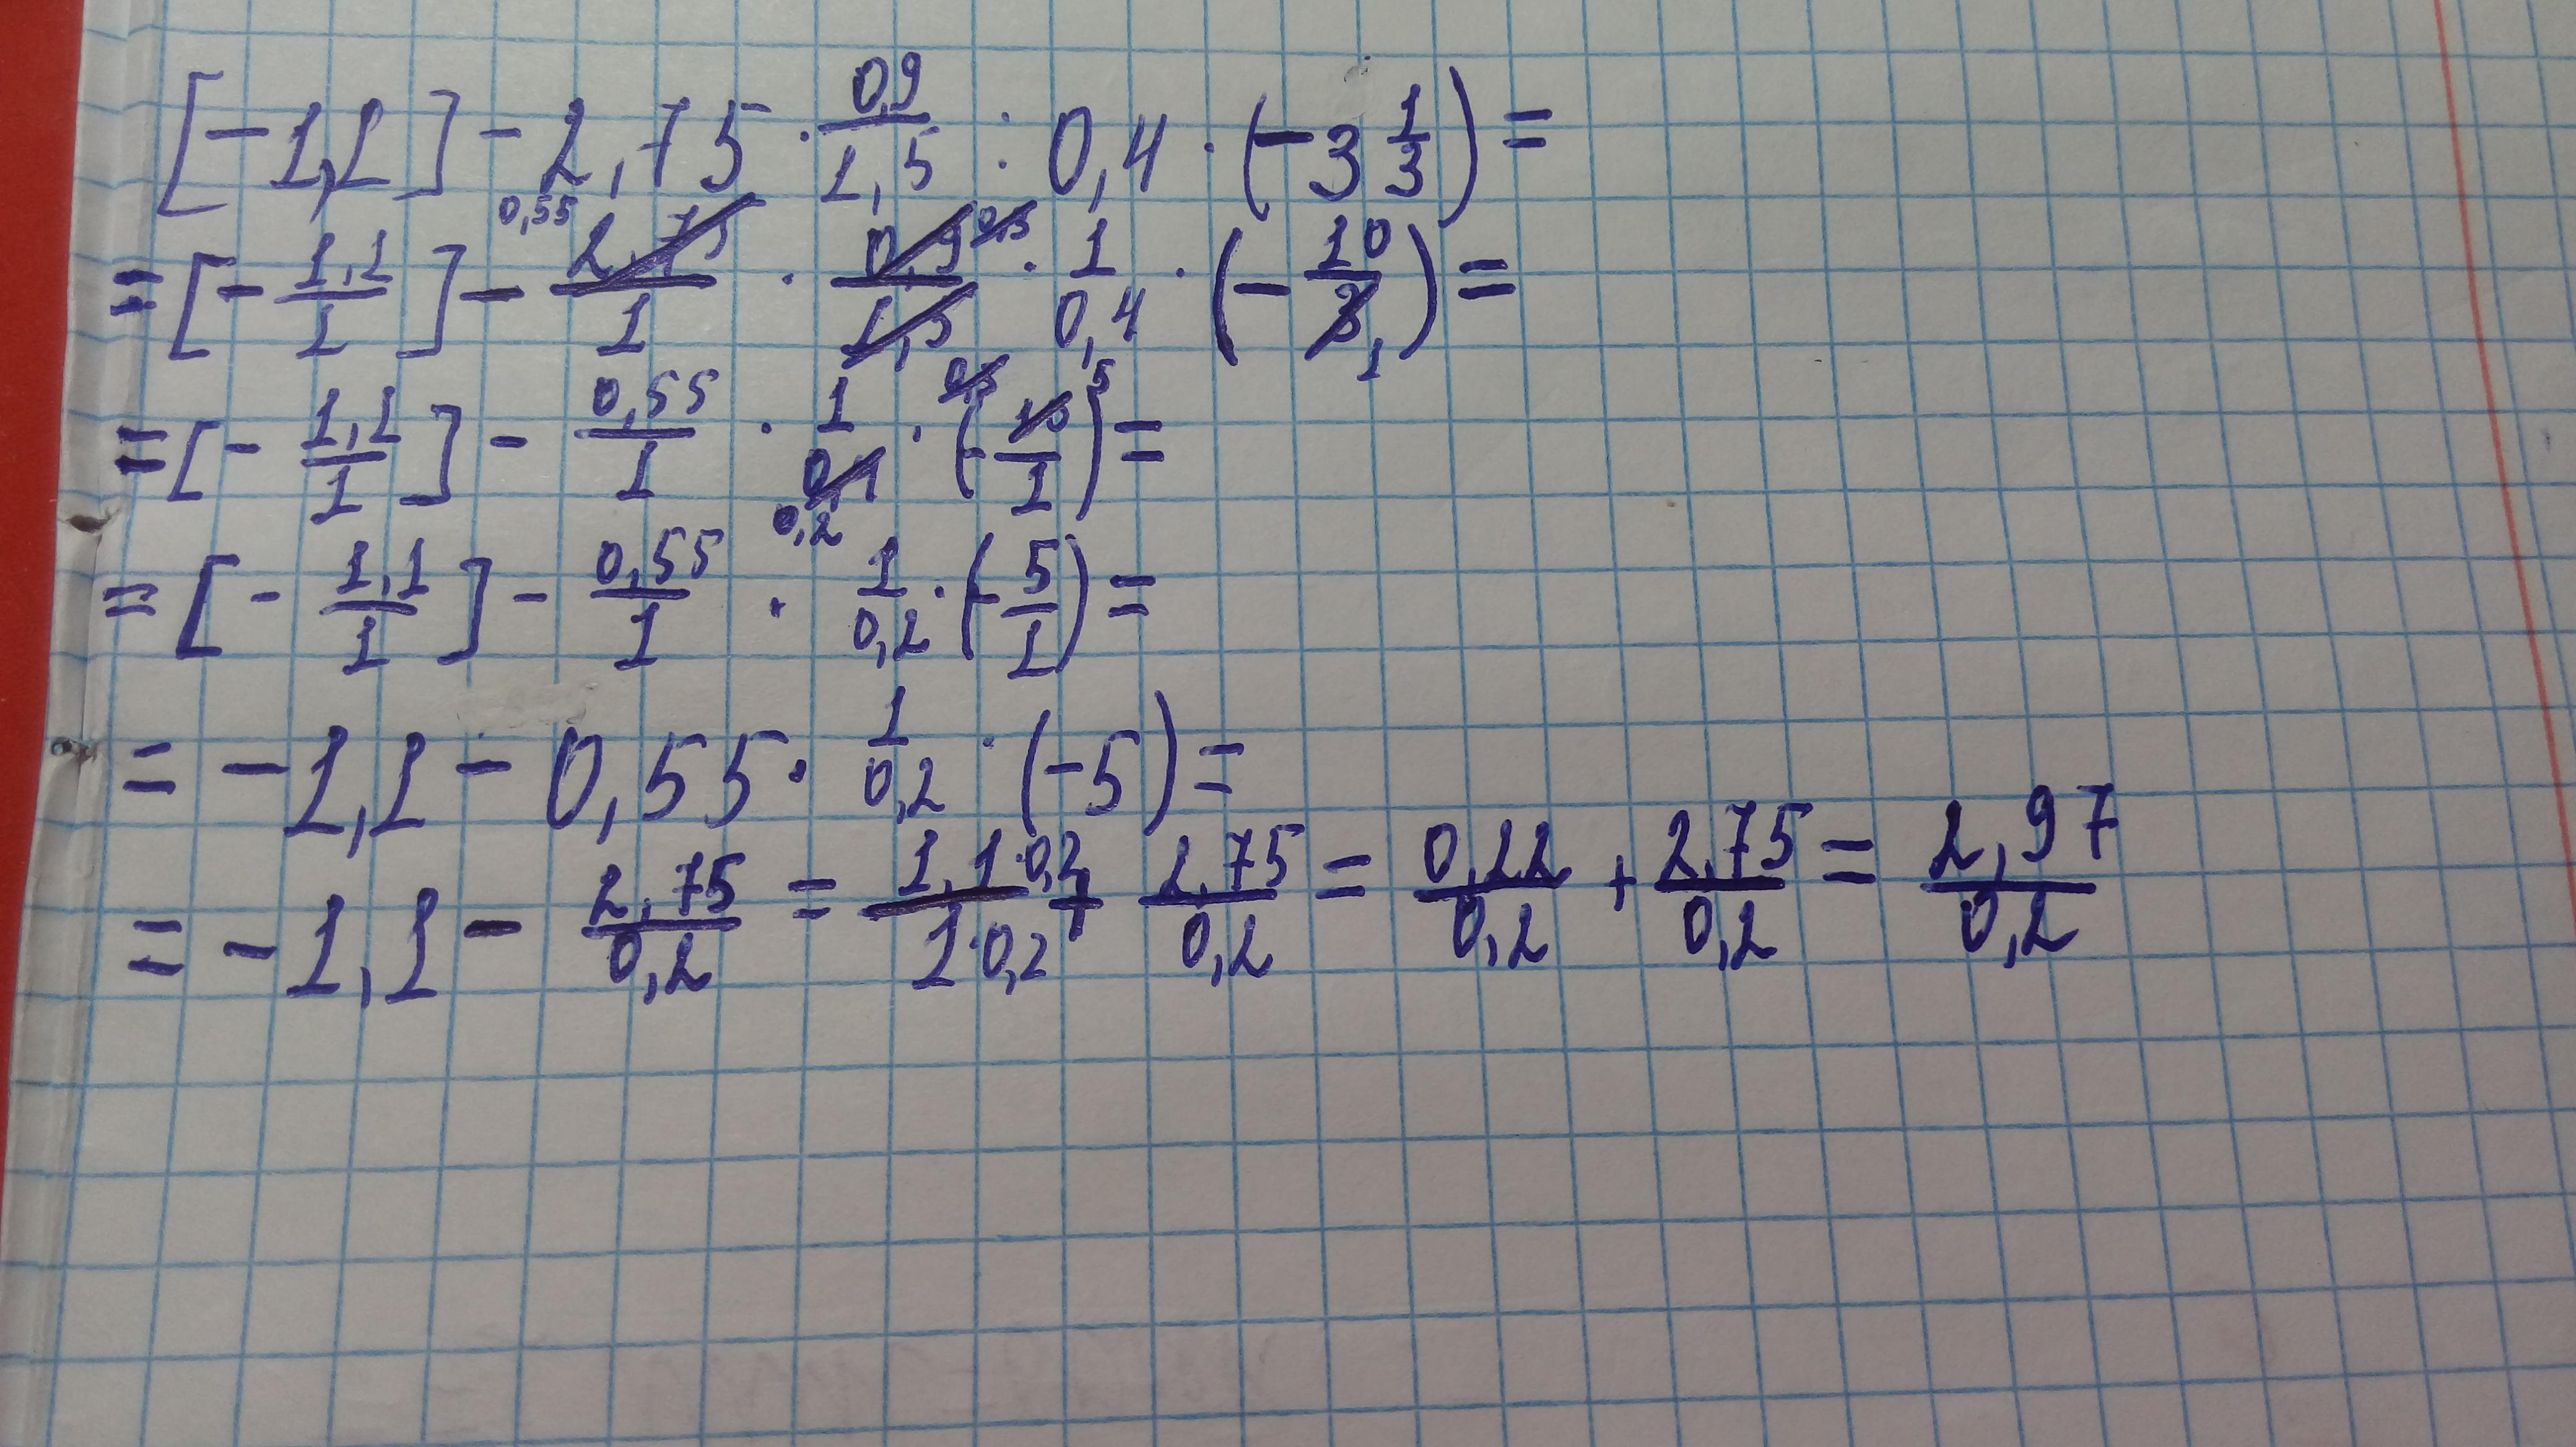 [-1,1] - 2,75 · 0,9/1,5 : 0,4 · (-3 1/3) =
= [- 1,1/1] - 2,75/1 · 0,9/1,5 · 1/0,4 · (- 10/3) =
= [- 1,1/1] - 0,55/1 · 1/0,4 · (- 10/1) =
= [- 1,1/1] - 0,55/1 · 1/0,2 · (- 5/1) =
= -1,1 - 0,55 · 1/0,2 · (-5) =
= -1,1 - 2,75/0,2 = 1,1·0,2/1·0,2 + 2,75/0,2 = 0,22/0,2 + 2,75/0,2 = 2,97/0,2